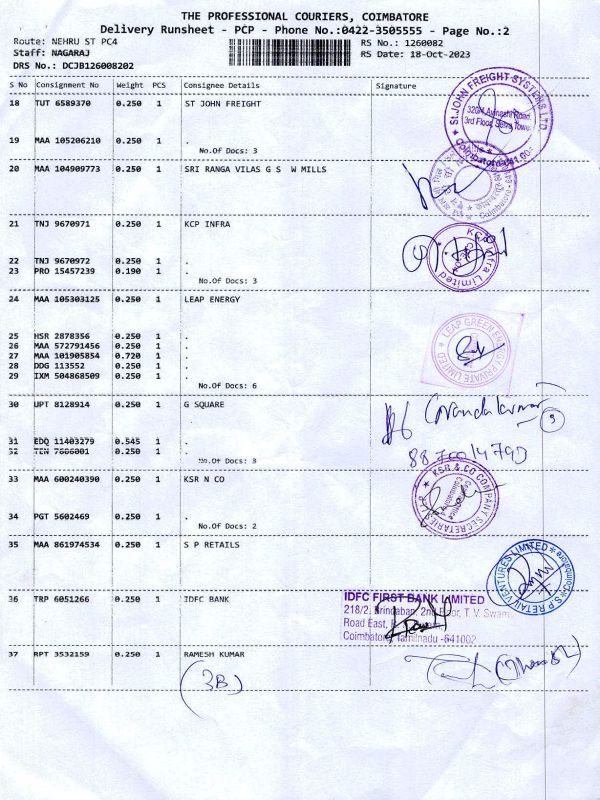 THE PROFESSIONAL COURIERS, COIMBATORE
Delivery Runsheet - PCP - Phone No.:0422-3505555 - Page No.:2
Route: NEHRU ST PC4
RS No.: 1260082
Staff: NAGARAJ
RS Date: 18-Oct-2023
DRS No.: DCJB126008202
S No Consignment No Weight PCS Consignee Details Signature
18 TUT 6589370 0.250 1 ST JOHN FREIGHT
St.JOHN FREIGHT SYSTEMS LTD.
3rd Floor,
19 MAA 105206210 0.250 1 .
No.Of Docs: 3
20 MAA 104909773 0.250 1 SRI RANGA VILAS G S W MILLS
Coimbatore
21 TNJ 9670971 0.250 1 KCP INFRA
22 TNJ 9670972 0.250 1 .
23 PRO 15457239 0.190 1 .
No.Of Docs: 3
Infra Limited
24 MAA 105303125 0.250 1 LEAP ENERGY
LEAP GREEN ENERGY PRIVATE LIMITED
25 HSR 2878356 0.250 1 .
26 MAA 572791456 0.250 1 .
27 MAA 101905854 0.720 1 .
28 DDG 113552 0.250 1 .
29 IXM 504868509 0.250 1 .
No.Of Docs: 6
30 UPT 8128914 0.250 1 G SQUARE
31 EDQ 11403279 0.545 1 .
32 TEN 7606001 0.250 1 .
No.Of Docs: 3
33 MAA 600240390 0.250 1 KSR N CO
KSR & CO COMPANY SECRETARIES
34 PGT 5602469 0.250 1 .
No.Of Docs: 2
35 MAA 861974534 0.250 1 S P RETAILS
S P RETAIL VENTURES LIMITED
Coimbatore
36 TRP 6051266 0.250 1 IDFC BANK
IDFC FIRST BANK LIMITED
218/2, Brindaban, 2nd Floor, T. V. Swamy
Road East,
Coimbatore, Tamilnadu -641002
37 RPT 3532159 0.250 1 RAMESH KUMAR
(3B)